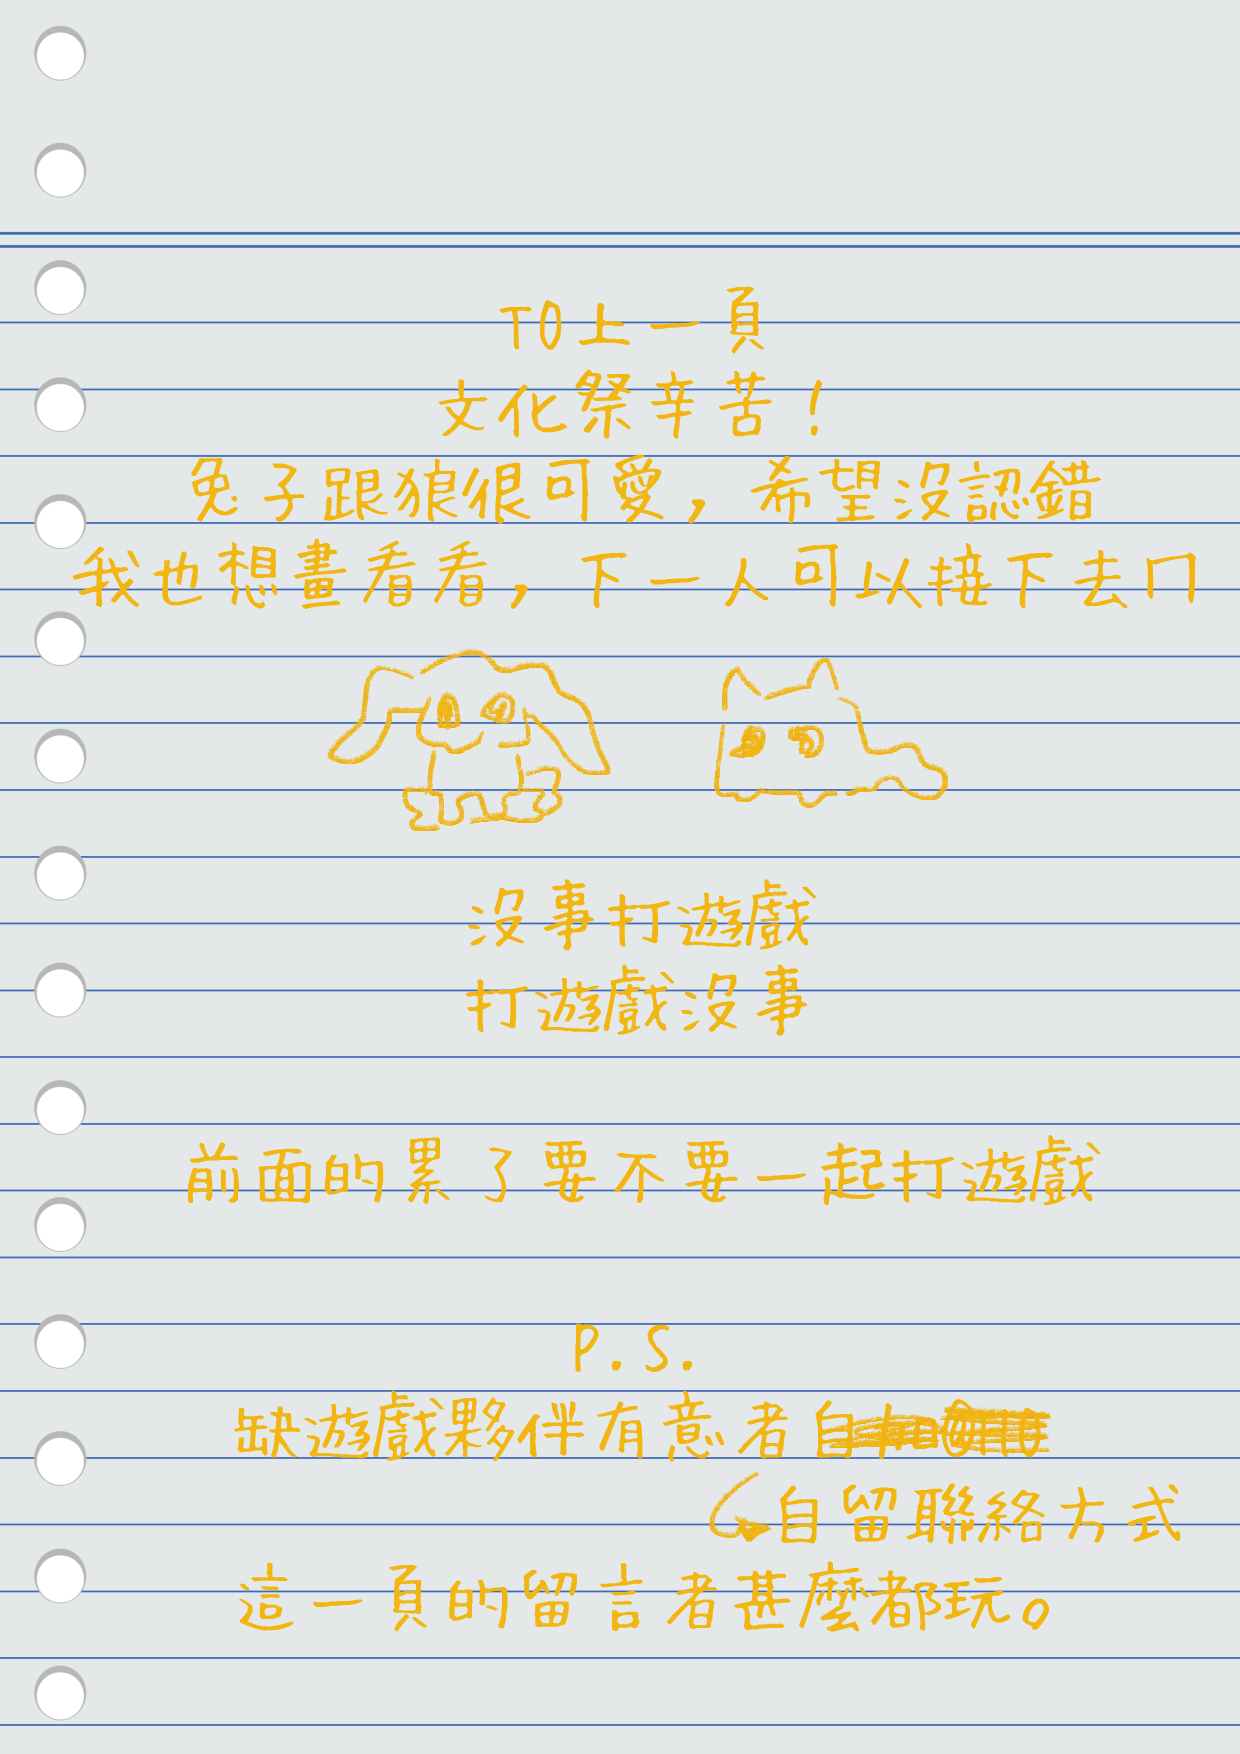 TO上一頁
文化祭辛苦！
兔子跟狼很可愛，希望沒認錯
我也想畫看看，下一人可以接下去ㄇ
沒事打遊戲
打遊戲沒事
前面的累了要不要一起打遊戲
P.S.
缺遊戲夥伴有意者自
自留聯絡方式
這一頁的留言者甚麼都玩。